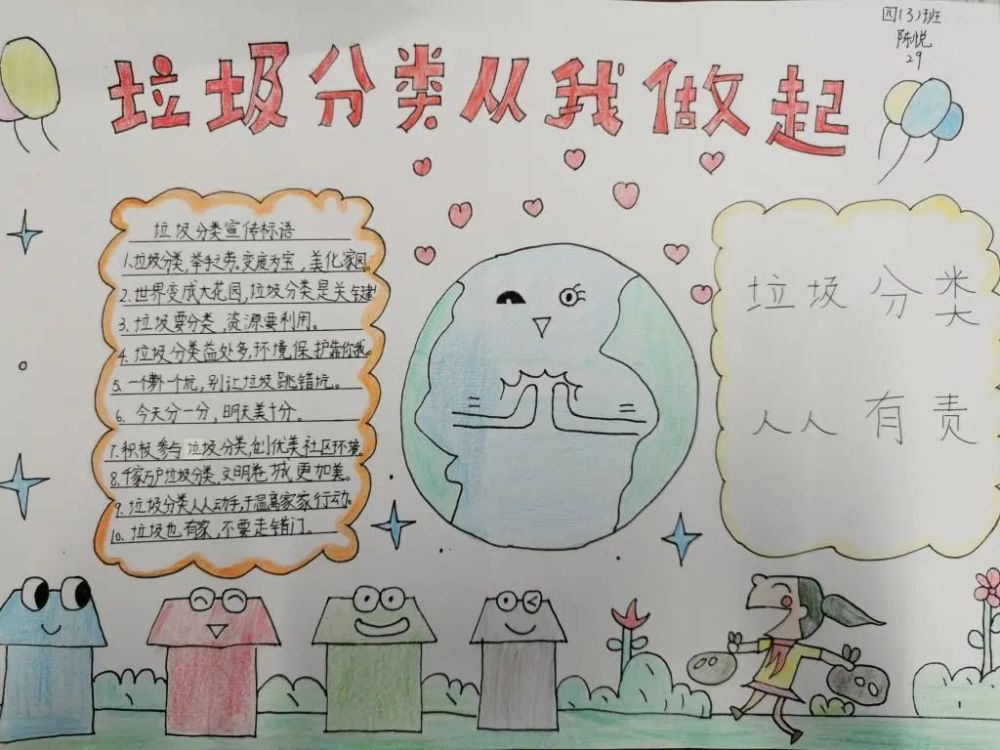 四(3)班
陈悦
29
垃圾分类从我做起
垃圾分类宣传标语
1.垃圾分类,举手之劳。变废为宝,美化家园。
2.世界变成大花园,垃圾分类是关键
3.垃圾要分类,资源要利用。
4.垃圾分类益处多,环境保护靠你我。
5.一个萝卜一个坑,别让垃圾跳错坑。
6.今天分一分,明天美十分。
7.积极参与垃圾分类,创优美社区环境
8.千家万户垃圾分类,文明卷城更加美。
9.垃圾分类人人动手,千温离家家行动。
10.垃圾也有家,不要走错门。
垃圾分类
人人有责